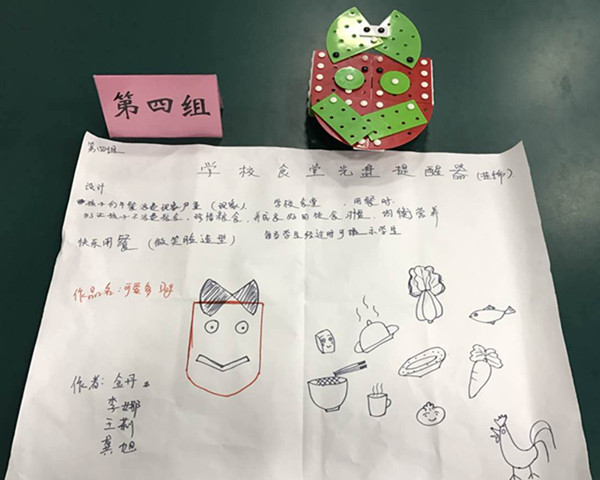 第四组
第四组
学校食堂光盘提醒器(装饰)
设计
孩子们午餐浪费现象严重(观察) 学校食堂 用餐时
孩子不浪费粮食,珍惜粮食,养成良好的饮食习惯,均衡营养
快乐用餐(微笑脸造型) 当学生经过时可提示学生
作品名:可爱多
作者:金丹
李娜
王莉
龚旭